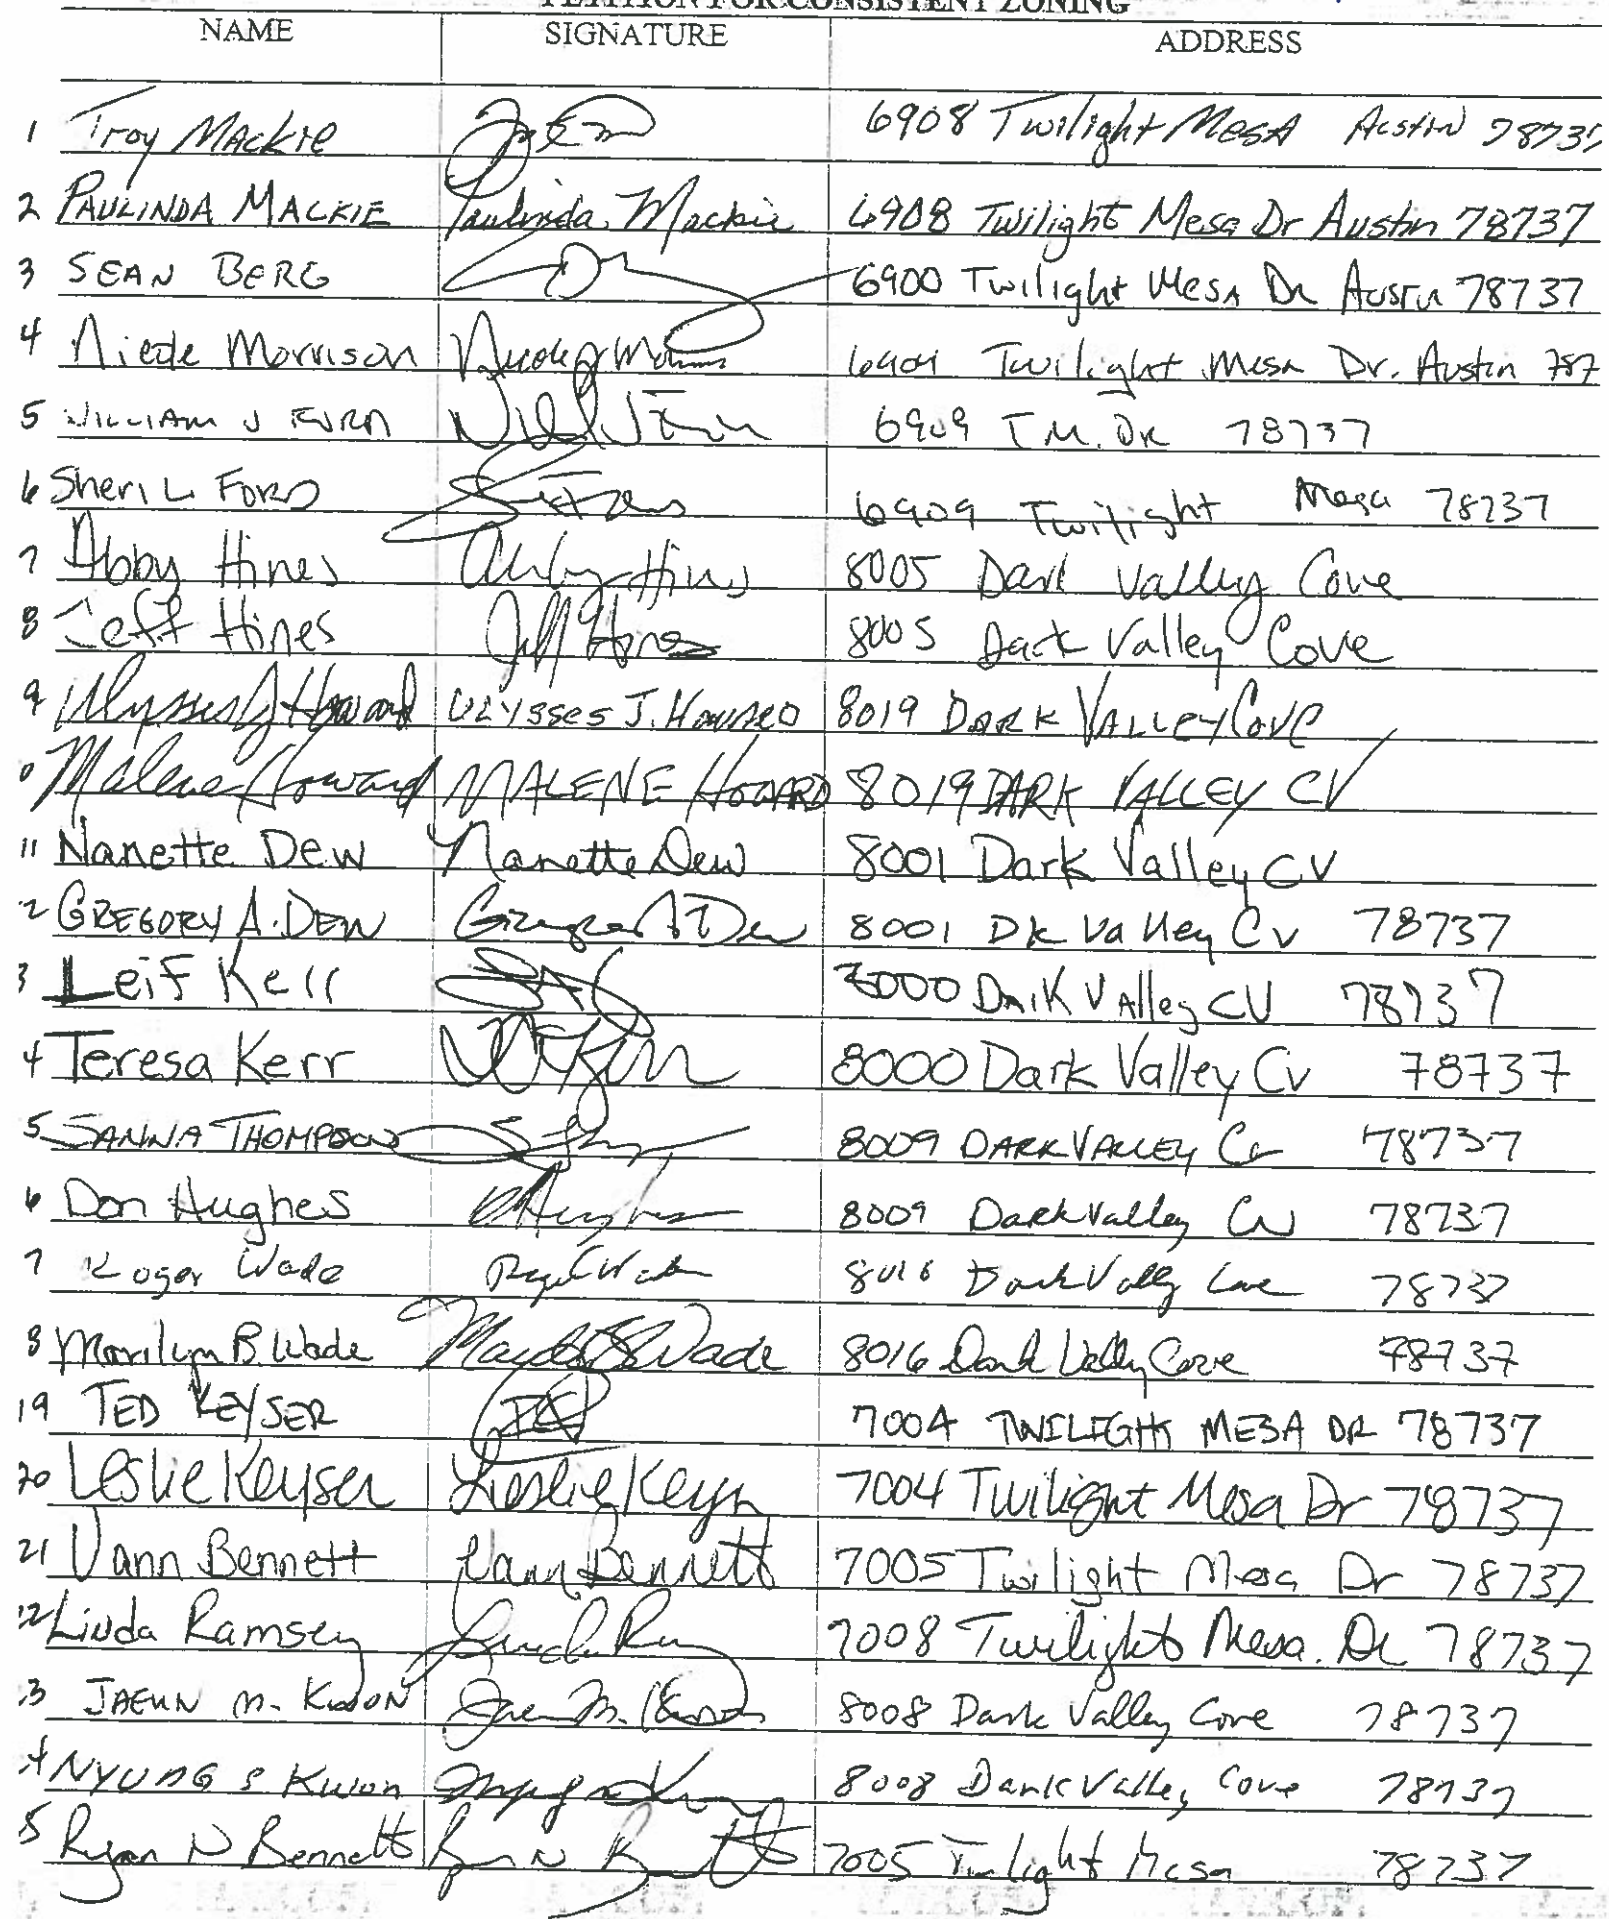 PETITION FOR CONSISTENT ZONING
NAME SIGNATURE ADDRESS
1 Troy Mackie 6908 Twilight Mesa Austin 78737
2 PAULINDA MACKIE Paulinda Mackie 6908 Twilight Mesa Dr Austin 78737
3 SEAN BERG 6900 Twilight Mesa Dr Austin 78737
4 Nicole Morrison Twilight Mesa Dr. Austin 787
5 WILLIAM J FORD 6909 T.M. DR 78737
6 Sheri L. FORD 6909 Twilight Mesa 78737
7 Abby Hines Abby Hines 8005 Dark Valley Cove
8 Jeff Hines Jeff Hines 8005 Dark Valley Cove
9 Ulysses J Howard ULYSSES J. HOWARD 8019 DARK VALLEY COVE
0 Malene Howard MALENE HOWARD 8019 DARK VALLEY CV
11 Nanette Dew Nanette Dew 8001 Dark Valley CV
2 GREGORY A. DEW Gregory A Dew 8001 Dk Valley Cv 78737
3 Leif Kerr 8000 Dark Valley CV 78737
4 Teresa Kerr 8000 Dark Valley Cv 78737
5 SANNA THOMPSON 8009 DARK VALLEY Cv 78737
6 Don Hughes D Hughes 8009 Dark Valley Cv 78737
7 Roger Wade Roger Wade 8016 Dark Valley Cove 78737
8 Marilyn B Wade Marilyn B Wade 8016 Dark Valley Cove 78737
19 TED KEYSER 7004 TWILIGHT MESA DR 78737
20 Leslie Keyser Leslie Keyser 7004 Twilight Mesa Dr 78737
21 Vann Bennett Vann Bennett 7005 Twilight Mesa Dr 78737
22 Linda Ramsey 7008 Twilight Mesa Dr 78737
3 JAEUN M. KWON 8008 Dark Valley Cove 78737
4 NYUNG S Kwon 8008 Dark Valley Cove 78737
5 Ryan N Bennett Ryan N Bennett 7005 Twilight Mesa 78737